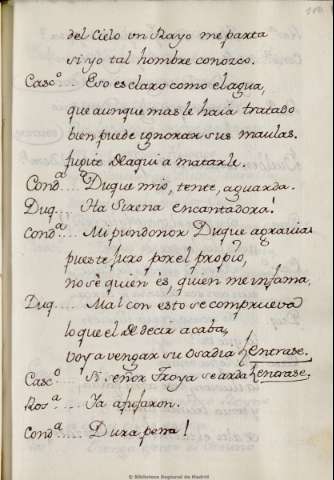 del Cielo un Rayo me parta
si yo tal hombre conozco.
Casc.º.... Eso es claro como el agua,
que aunque mas le haia tratado
bien puede ignorar sus maulas.
Cond.ª Duque mio, tente, aguarda.
Duq.... Ha Sirena encantadora!
Cond.ª.... Mi pundonor Duque agravias
pues te juro por el propio,
no sè quien es, quien me infama,
Duq.... Mal con esto se comprueva
lo que el de decir acaba,
voy a vengar su osadia
Casc.º.... Si señor Troya se arda
Ros.ª.... Ya afufaron.
Cond.ª.... Dura pena!
© Biblioteca Regional de Madrid